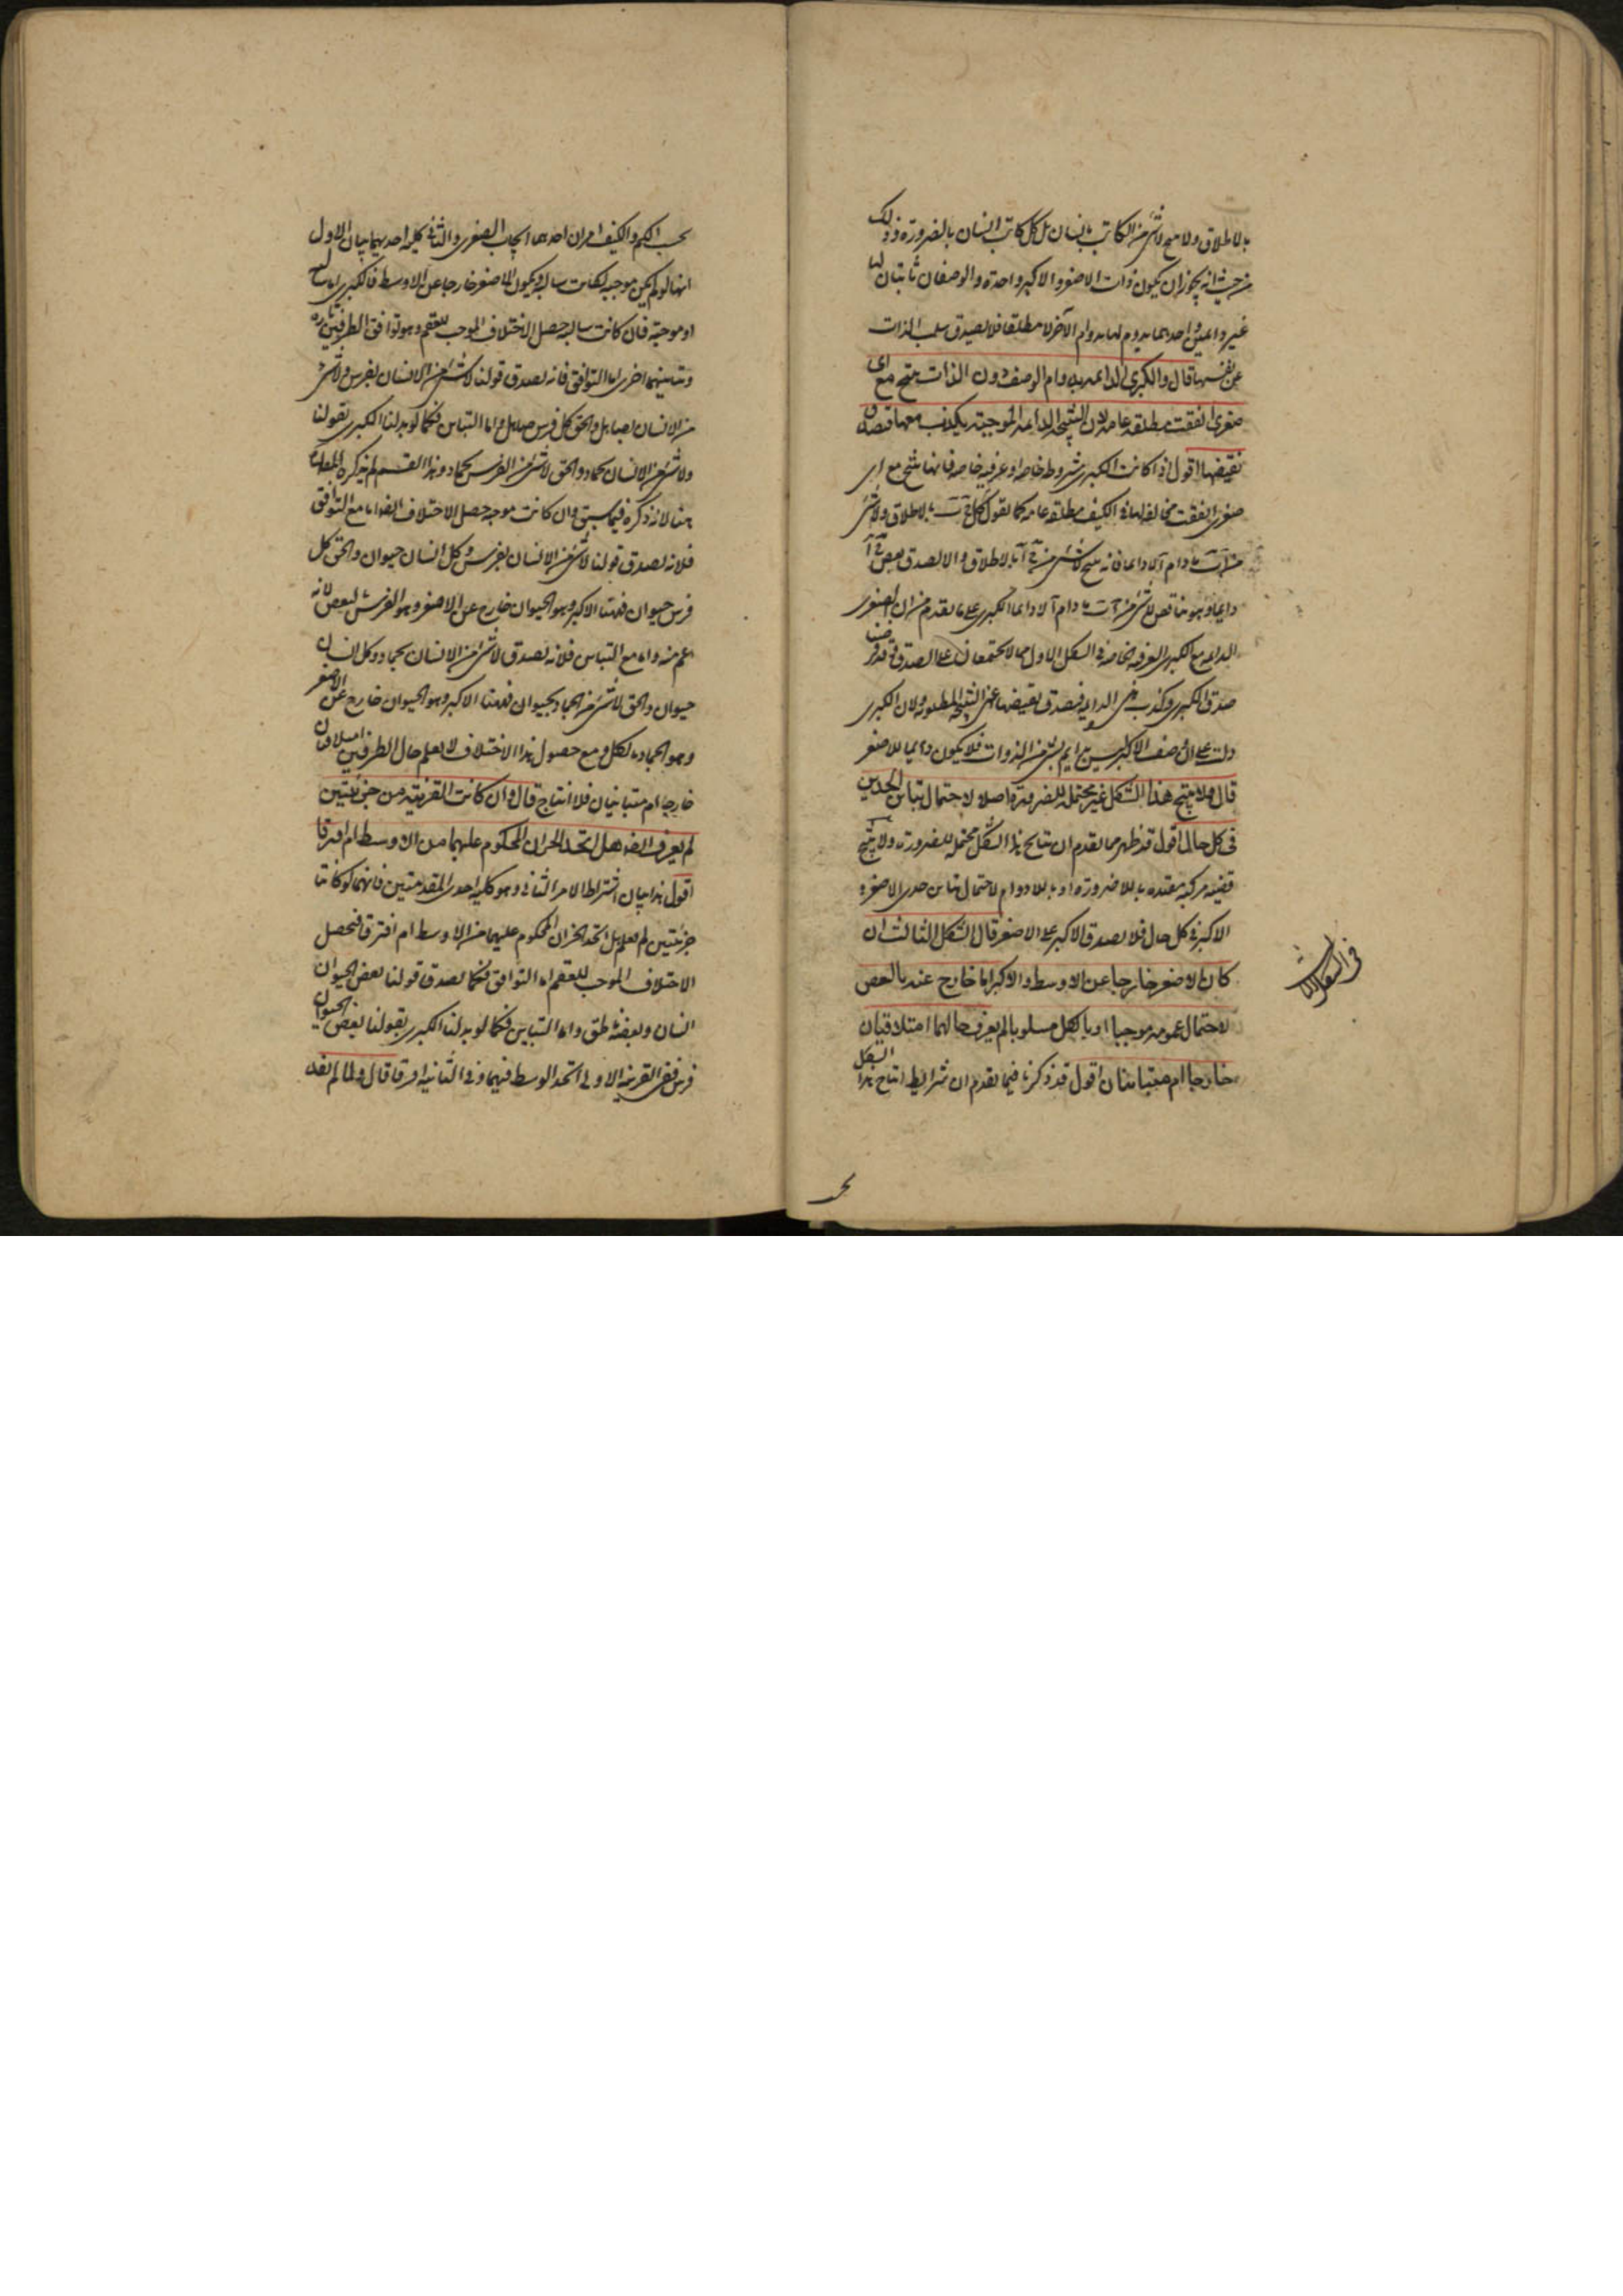 بالاطلاق ولا ينتج لا شئ من الكاتب بانسان بل كل كاتب انسان بالضرورة وذلك
من حيث انه يجوز ان يكون ذات الاصغر والاكبر واحدة والوصفان ثابتان لها
غير دائمين واحدهما يدوم لها بدوام الآخر لا مطلقا فلا يصدق سلب الذات
عن نفسها قال والكبرى الدائمة بدوام الوصف دون الذات ينتج مع اى
صغرى اتفقت مطلقة عامة لان النتيجة الدائمة الموجبة يكذب معها فتصدق
نقيضها اقول اذا كانت الكبرى مشروطة خاصة او عرفية خاصة فانها تنتج مع اى
صغرى اتفقت مخالفة لها فى الكيف مطلقة عامة كما تقول كل ج ب بالاطلاق ولا شئ
من آ ب ما دام آ لا دائما فانه ينتج لا شئ من ج آ بالاطلاق والا لصدق بعض ج آ
دايما وهو يناقض لا شئ من آ ب ما دام آ لا دايما الكبرى على ما تقدم من ان الصغرى
الدايمة مع الكبرى العرفية الخاصة فى الشكل الاول مما لا يجتمعان على الصدق وقد فرضنا
صدق الكبرى وكذب هى الدايمة فيصدق نقيضها اعنى النتيجة المطلوبة ولان الكبرى
دلت على ان وصف الاكبر ليس بدايم لشئ من الذوات فلا يكون دايما للاصغر
قال ولا ينتج هذا الشكل غير محتملة للضرورة اصلا لاحتمال تباين الحدين
فى كل حال اقول قد ظهر مما تقدم ان نتايج هذا الشكل محتملة للضرورة ولا ينتج
قضية مركبة مقيدة باللاضرورة او باللادوام لاحتمال تباين حدى الاصغر و
الاكبر فى كل حال فلا يصدق الاكبر على الاصغر قال الشكل الثالث ان
كان الاصغر خارجا عن الاوسط والاكبر اما خارج عنه بالبعض
لاحتمال عمومه موجبا او بالكل مسلوبا لم يعرف حالهما امتلاقيان
خارجا ام متباينان اقول قد ذكرنا فيما تقدم ان شرايط انتاج هذا الشكل
بحسب الكم والكيف امران احدهما ايجاب الصغرى والثانى كلية احديهما بيان الاول
انها لو لم يكن موجبة لكانت سالبة ويكون الاصغر خارجا عن الاوسط فالكبرى اما سالبة
او موجبة فان كانت سالبة حصل الاختلاف الموجب للعقم وهو توافق الطرفين تارة
وتباينهما اخرى اما التوافق فانه يصدق قولنا لا شئ من الانسان بفرس ولا شئ
من الانسان بصاهل والحق كل فرس صاهل واما التباين فكما لو بدلنا الكبرى بقولنا
ولا شئ من الانسان بجماد والحق لا شئ من الفرس بجماد وهذا القسم لم يذكره المصنف
هنا لانه ذكره فيما سبق وان كانت موجبة حصل الاختلاف ايضا اما مع التوافق
فلانه يصدق قولنا لا شئ من الانسان بفرس وكل انسان حيوان والحق كل
فرس حيوان فهنا الاكبر وهو الحيوان خارج عن الاصغر وهو الفرس لبعض لانه
اعم منه واما مع التباين فلانه يصدق لا شئ من الانسان بجماد وكل انسان
حيوان والحق لا شئ من الجماد بحيوان فهنا الاكبر وهو الحيوان خارج عن الاصغر
وهو الجماد بالكل ومع حصول هذا الاختلاف لا يعلم حال الطرفين امتلاقيان
خارجا ام متباينان فلا انتاج قال وان كانت القرينة من جزئيتين
لم يعرف ايضا هل اتحد الجزءان المحكوم عليهما من الاوسط ام افترقا
اقول هذا بيان اشتراط الامر الثانى وهو كلية احدى المقدمتين فانهما لو كانتا
جزئيتين لم يعلم هل اتحد الجزءان المحكوم عليهما من الاوسط ام افترقا فيحصل
الاختلاف الموجب للعقم اما التوافق فكما يصدق قولنا بعض الحيوان
انسان وبعضه ناطق واما التباين فكما لو بدلنا الكبرى بقولنا بعض الحيوان
فرس ففى القرينة الاولى اتحد الوسط فيهما وفى الثانية افترقا قال ولما لم نفد